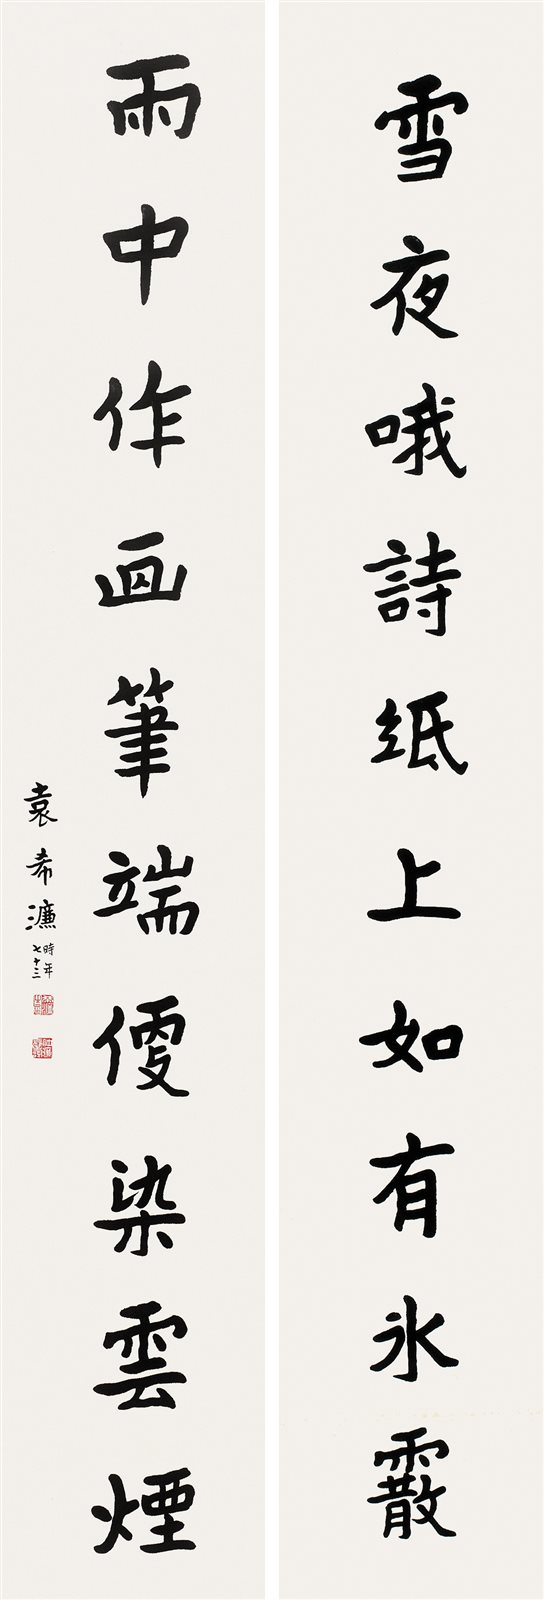 雪夜哦詩紙上如有氷霰
雨中作画筆端優染雲煙
袁希濂
時年
七十三